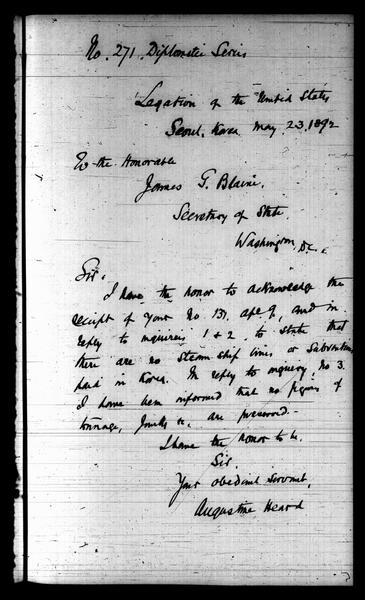 No. 271. Diplomatic Series
Legation of the United States
Seoul, Korea May 23. 1892
To the Honorable
James G. Blaine,
Secretary of State
Washington, D.C.
Sir:
I have the honor to acknowledge the
receipt of your No 131, Apl 9, and in
reply to inquiries 1 & 2, to state that
there are no Steam ship lines or Subventions
paid in Korea. In reply to inquiry No 3.
I have been informed that no figures of
tonnage, &c. are preserved.-
I have the honor to be.
Sir.
Your obedient servant,
Augustine Heard